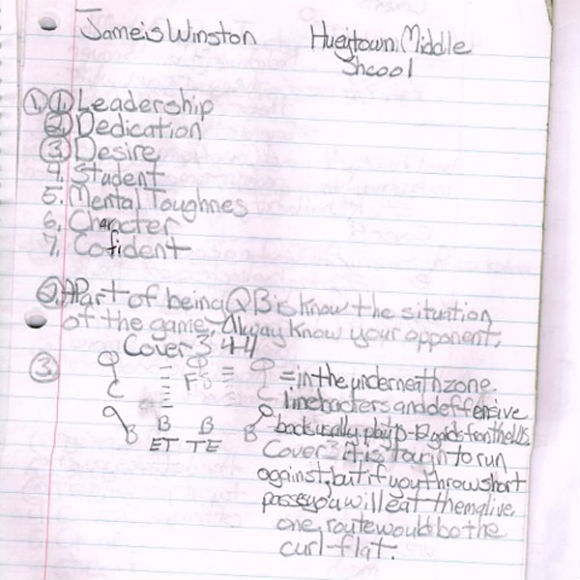 Jameis Winston Hueytown Middle
Shcool
1. 1. Leadership
2. Dedication
3. Desire
4. Student
5. Mental Toughnes
6. Character
7. Cofident
2. A Part of being QB is know the situation
of the game, Alway know your opponent,
Cover 3 44
3.
C FS C = in the underneath zone
linebackers and deffensive
B B B B backs usally play from the
ET TE
Cover 3 it is to run
against, but if you throw short
passes you will eat them alive
one route would be the
curl-flat.